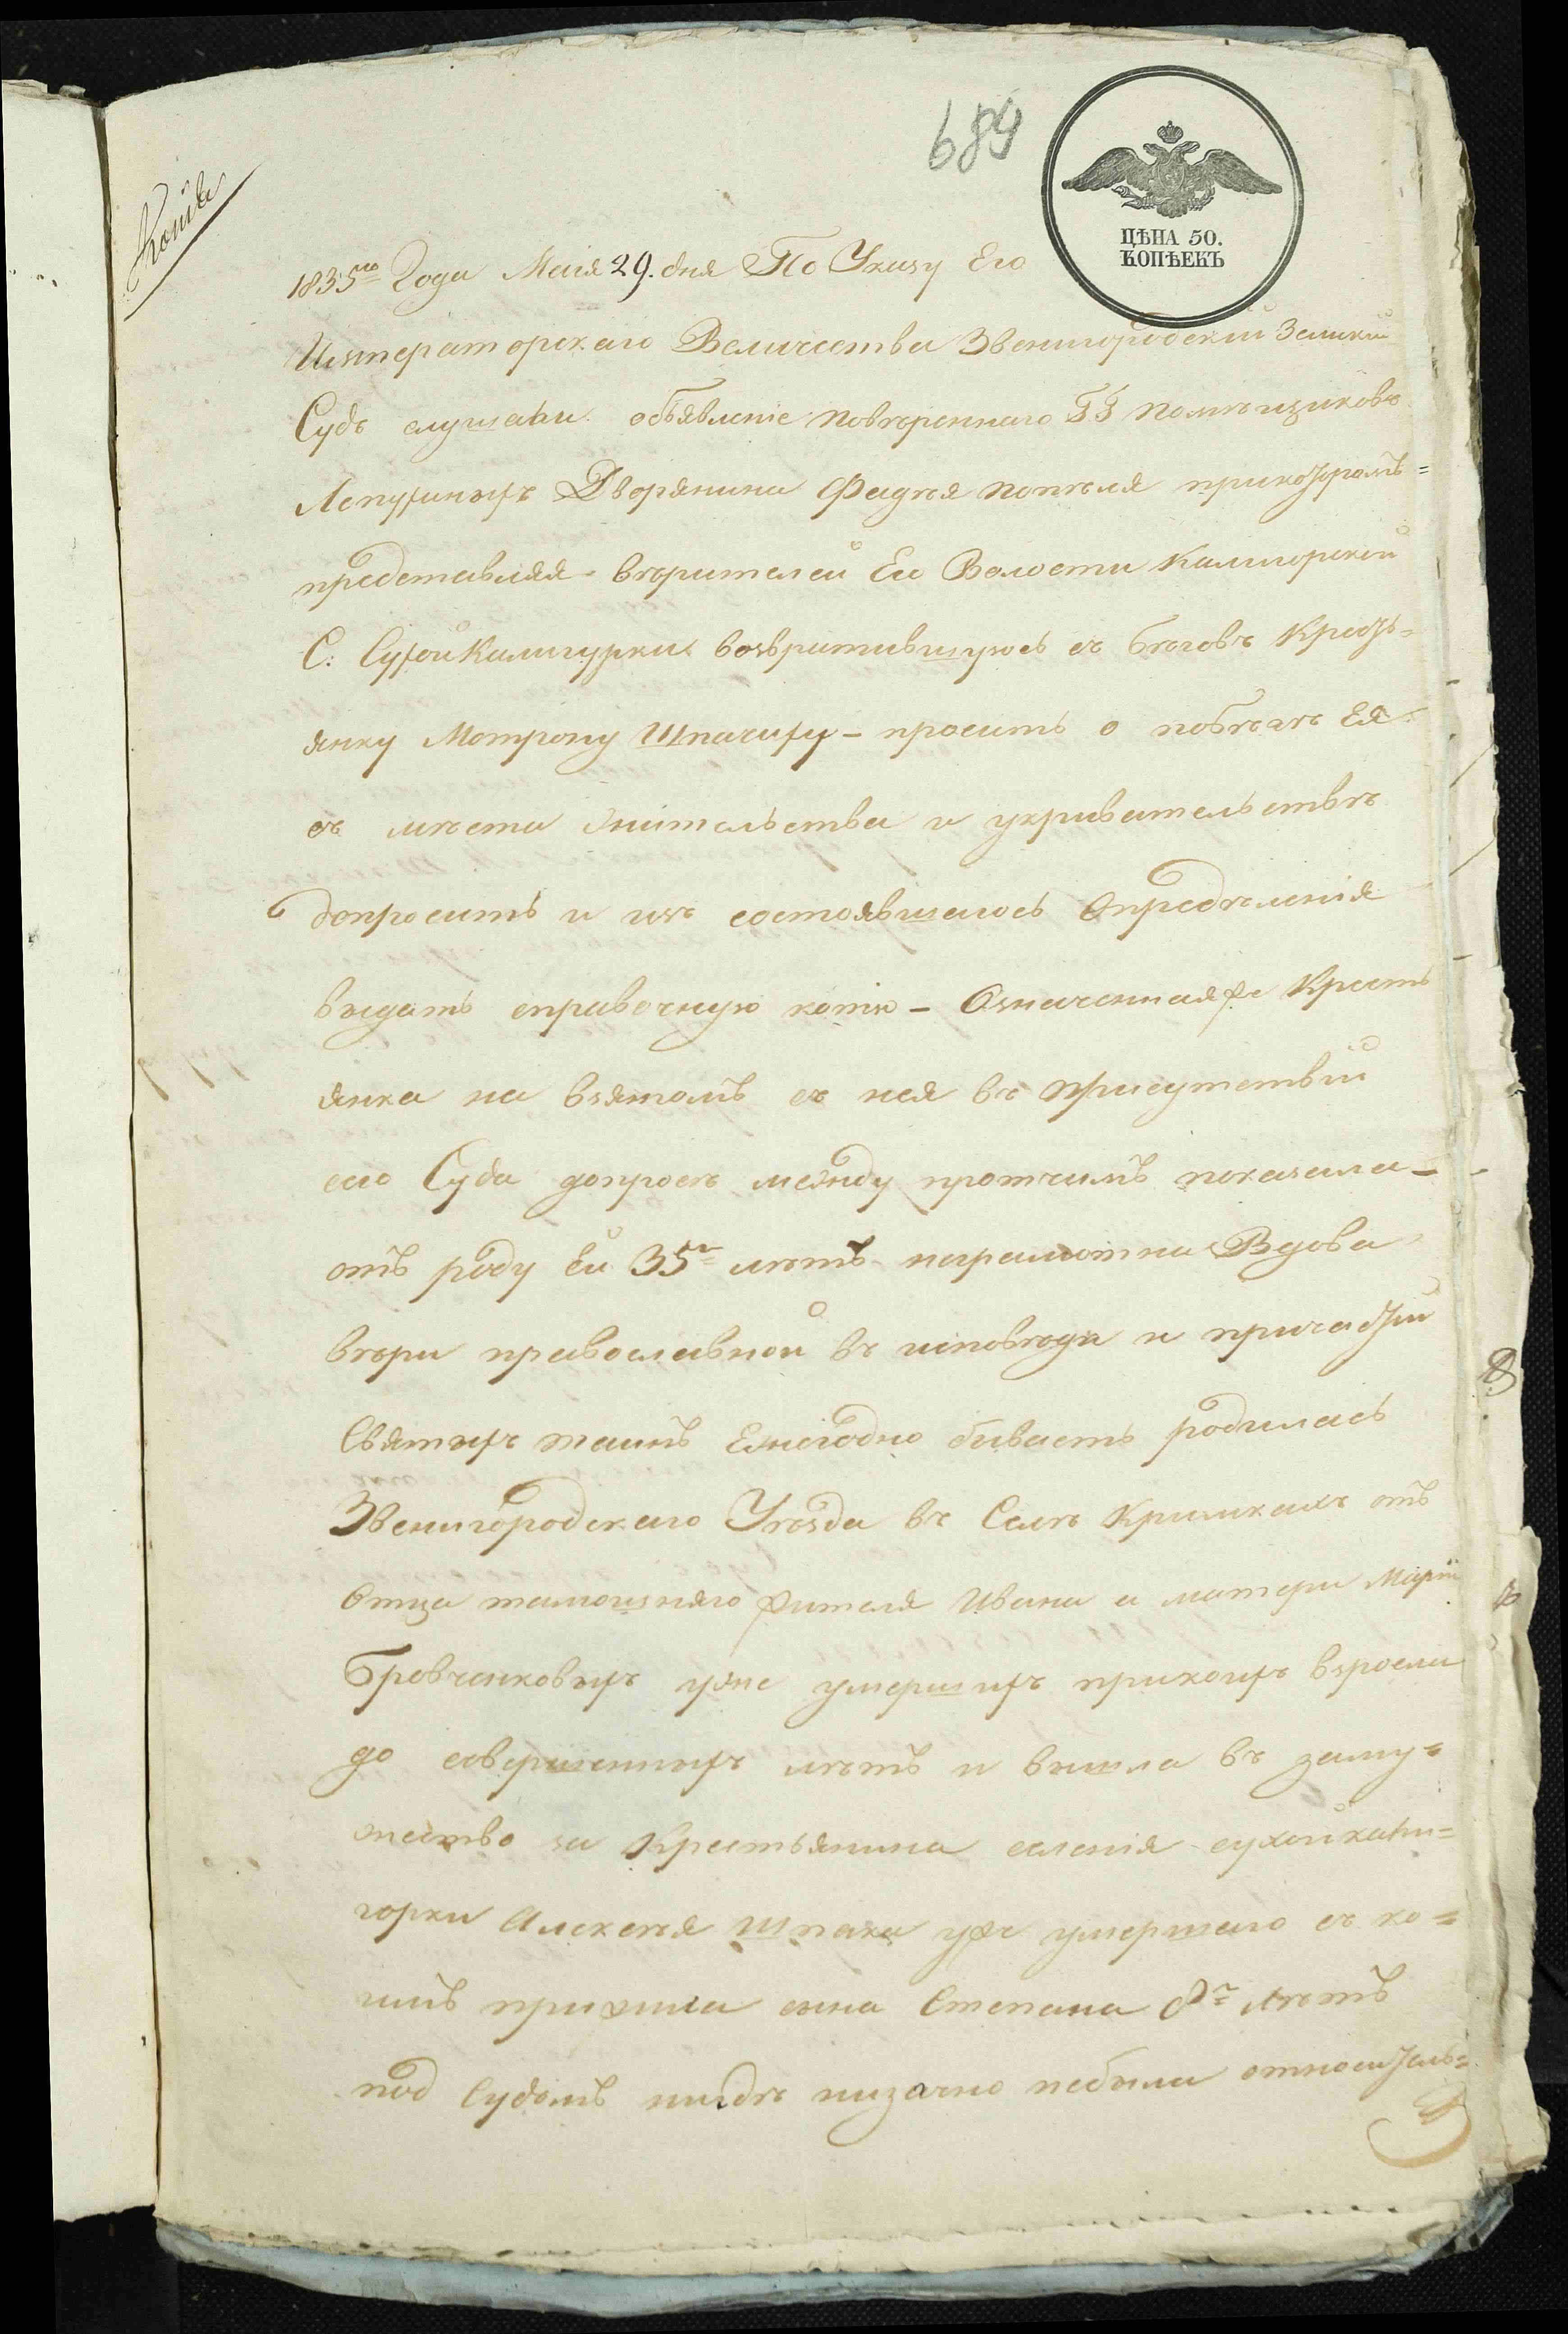 Копія
689
ЦѢНА 50.
КОПѢЕКЪ
1835го Года Маія 29. дня По Указу Его
Императорскаго Величества Звенигородскій Земскій
Судъ слушали объявленіе повѣреннаго ГГ помѣщиковъ
Лопухиныхъ Дворянина Фадѣя попѣля прикоторомъ=
представляя вѣрителей Его Волости Калигорской
С: Сухой Калигурки возвратившуюсь съ бѣговъ Кресть=
янку Мотрону Шпачиху – проситъ о побѣгѣ Ея
съ мѣста жительства и укривательствѣ
допросить и изъ состоявшегось Опредѣленія
выдать справочную копію – Означенная же Кресть
янка на взятомъ съ нея въ присутствіи
сего Суда допросѣ между протчимъ показала –
отъ роду Ей 35ть лѣтъ неграмотна Вдова
вѣри православной въ исповѣди и причастіи
Святыхъ таинъ Ежегодно бываетъ родилась
Звенигородскаго Уѣзда въ Селѣ Кримкахъ отъ
Отца тамошняго жителя Ивана и матери Маріи
Бровченковыхъ уже умершихъ прикоихъ взросла
до совершенныхъ лѣтъ и вышла въ заму=
жество за Крестьянина селенія сухой кали=
горки Алексѣя Шпака уже умершаго съ ко=
имъ прижила сына Степана 8ть лѣтъ
под Судомъ нигдѣ низачто небыла относитель=